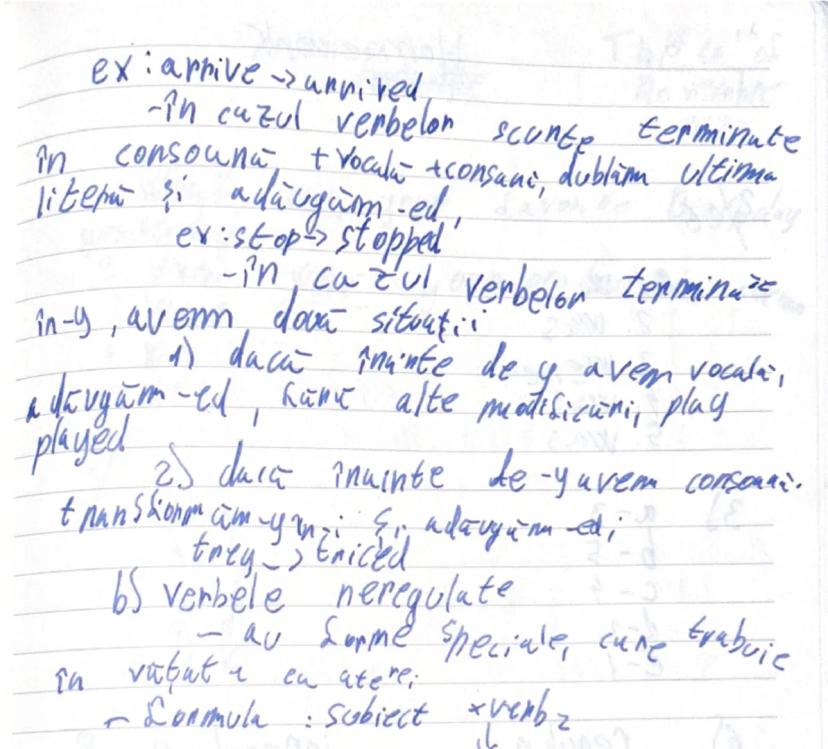 ex: arrive -> arrived
-în cazul verbelor scurte terminate
în consoană + vocală + consană, dublăm ultima
literă și adăugăm -ed,
ex: stop -> stopped
-în cazul verbelor terminate
în -y, avem două situații
1) dacă înainte de y avem vocală,
adăugăm -ed, fără alte modificări, play
played
2) dacă înainte de -y avem consoană.
transformăm -y în -i și adăugăm -ed;
trey -> triced
b) verbele neregulate
- au forme speciale, care trabuie
învățat a ca atere;
- formula : subiect + verb2